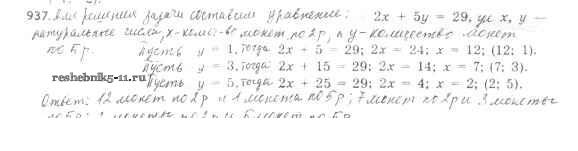 937. Для решения задачи составим уравнение: 2x + 5y = 29, где x, y —
натуральные числа, x - кол-во монет по 2р, а y - количество монет
по 5р.
Пусть y = 1, тогда 2x + 5 = 29; 2x = 24; x = 12; (12; 1).
Пусть y = 3, тогда 2x + 15 = 29; 2x = 14; x = 7; (7; 3).
reshebnik5-11.ru Пусть y = 5, тогда 2x + 25 = 29; 2x = 4; x = 2; (2; 5).
Ответ: 12 монет по 2р и 1 монета по 5р; 7 монет по 2р и 3 монеты